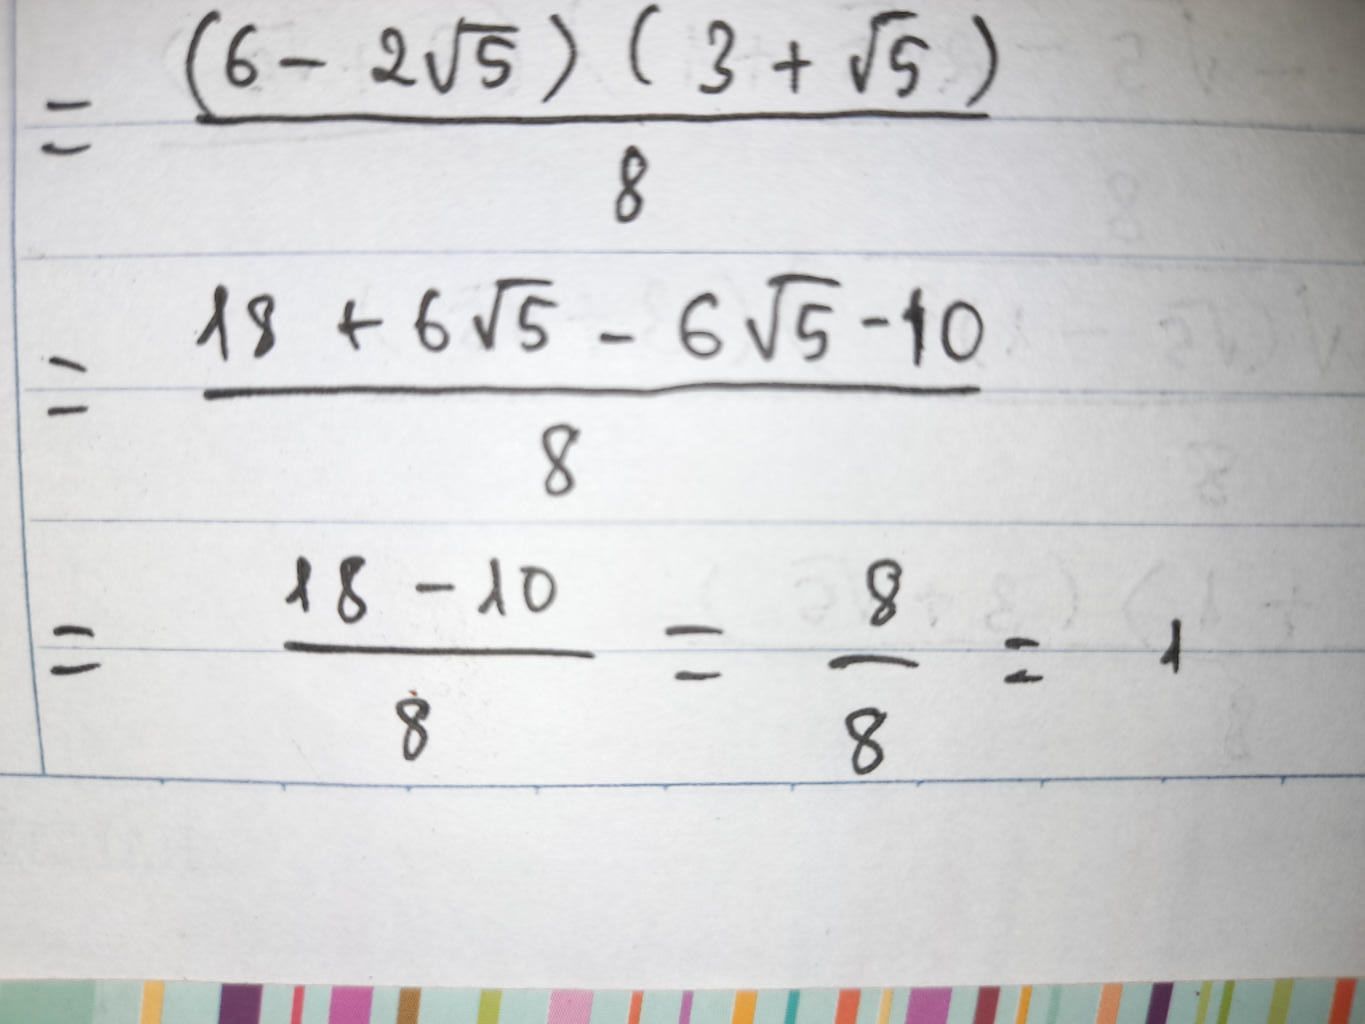 = (6 - 2√5) (3 + √5)
8
= 18 + 6√5 - 6√5 - 10
8
= 18 - 10 = 8 = 1
8 8